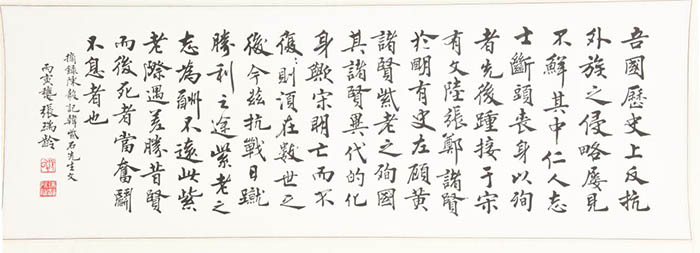 吾國歷史上反抗
外族之侵略屢見
不鮮其中仁人志
士斷頭喪身以殉
者先後踵接于宋
有文陸張鄭諸賢
於明有史左顧黄
諸賢紫老之殉國
其諸賢異代的化
身歟宋明亡而不
復則須在數世之
後今茲抗戰日躋
勝利之途紫老之
志為酬不遠此紫
老際遇差勝昔賢
而後死者當奮鬭
不息者也
摘錄陳毅記韓紫石先生文
丙寅 張瑞龄